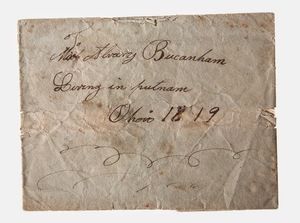 Miss Alvary Bucanham
Living in putnam
Ohio 1819